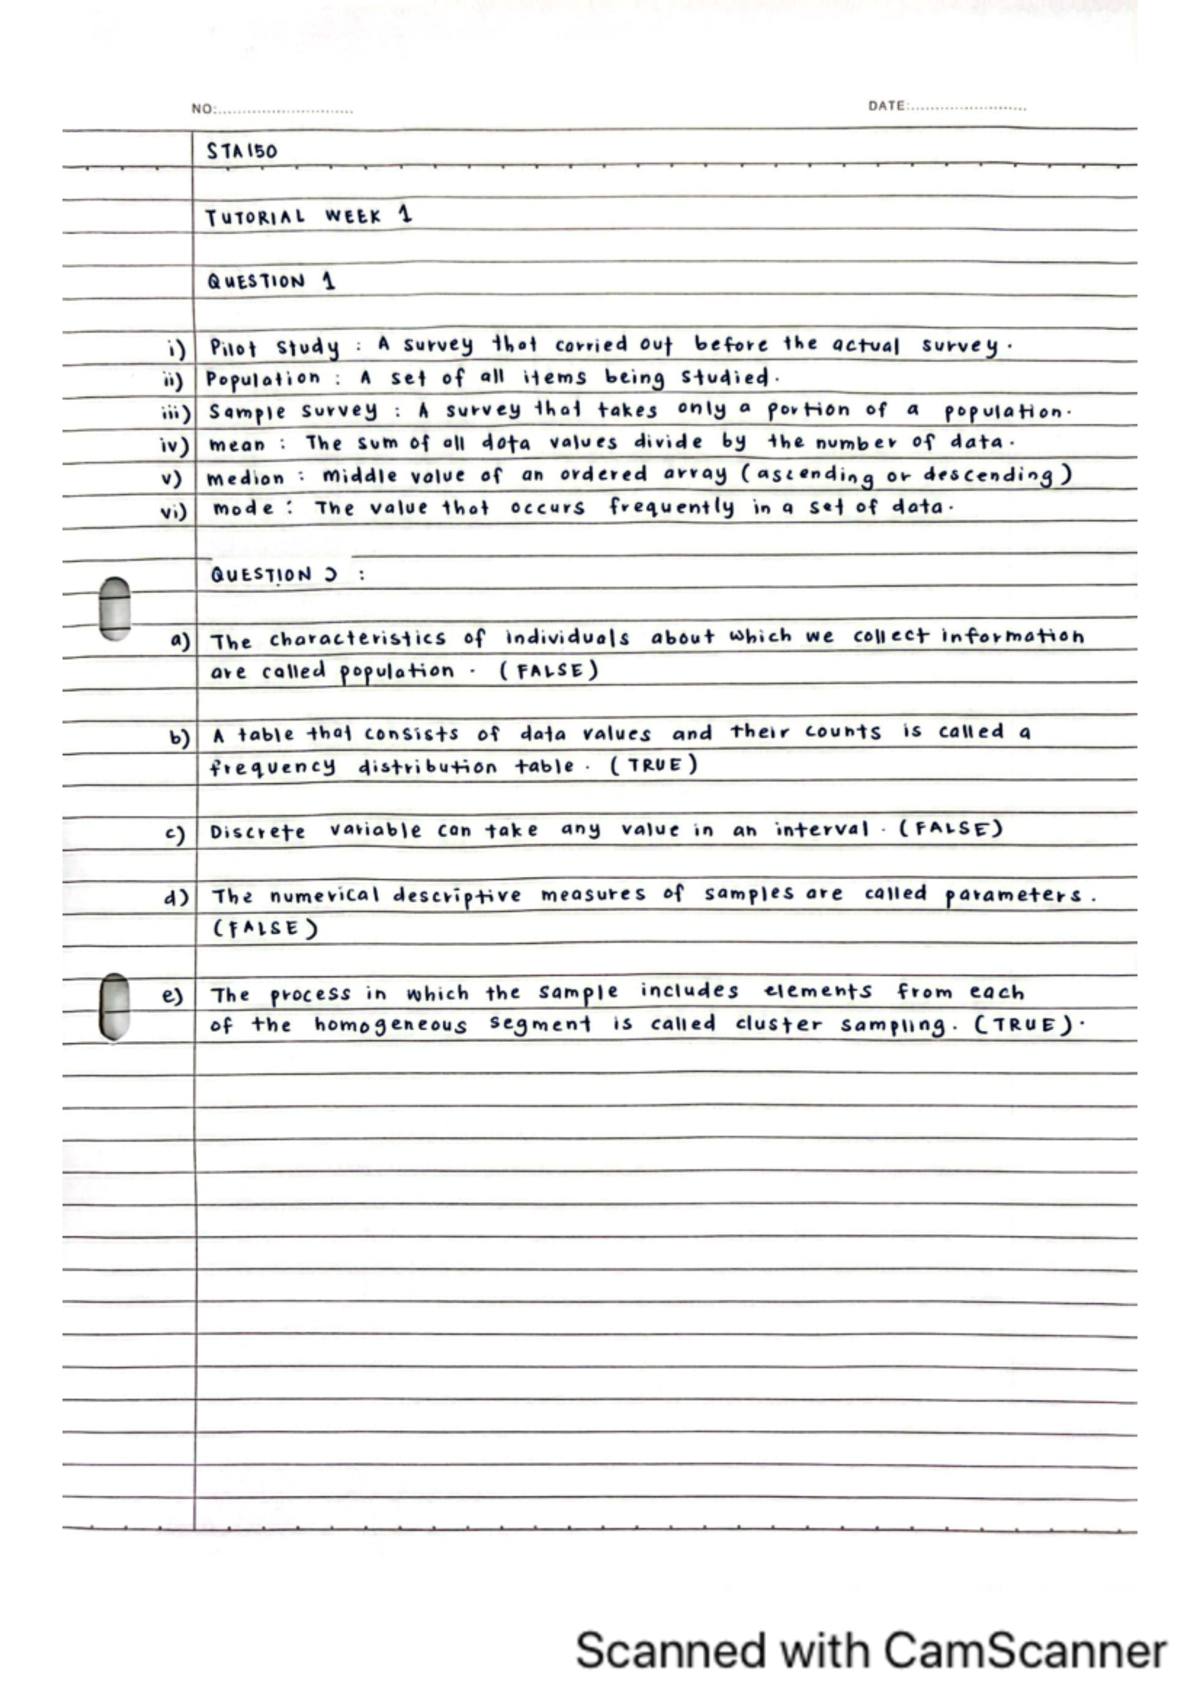 NO:............................
DATE:........................
STA150
TUTORIAL WEEK 1
QUESTION 1
i) Pilot Study : A survey that carried out before the actual survey.
ii) Population : A set of all items being studied.
iii) Sample survey : A survey that takes only a portion of a population.
iv) mean : The sum of all data values divide by the number of data.
v) median : middle value of an ordered array (ascending or descending)
vi) mode : The value that occurs frequently in a set of data.
QUESTION 2 :
a) The characteristics of individuals about which we collect information
are called population . (FALSE)
b) A table that consists of data values and their counts is called a
frequency distribution table . (TRUE)
c) Discrete variable can take any value in an interval . (FALSE)
d) The numerical descriptive measures of samples are called parameters .
(FALSE)
e) The process in which the sample includes elements from each
of the homogeneous segment is called cluster sampling. (TRUE).
Scanned with CamScanner